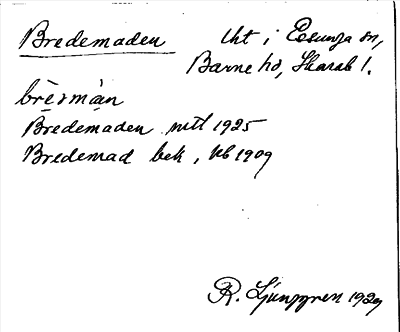 Bredemaden uht i Essunga sn,
Barne hd, Skarab l.
brèsmàn
Bredemaden mtl 1925
Bredemad bek, kb 1909
R. Ljunggren 1929